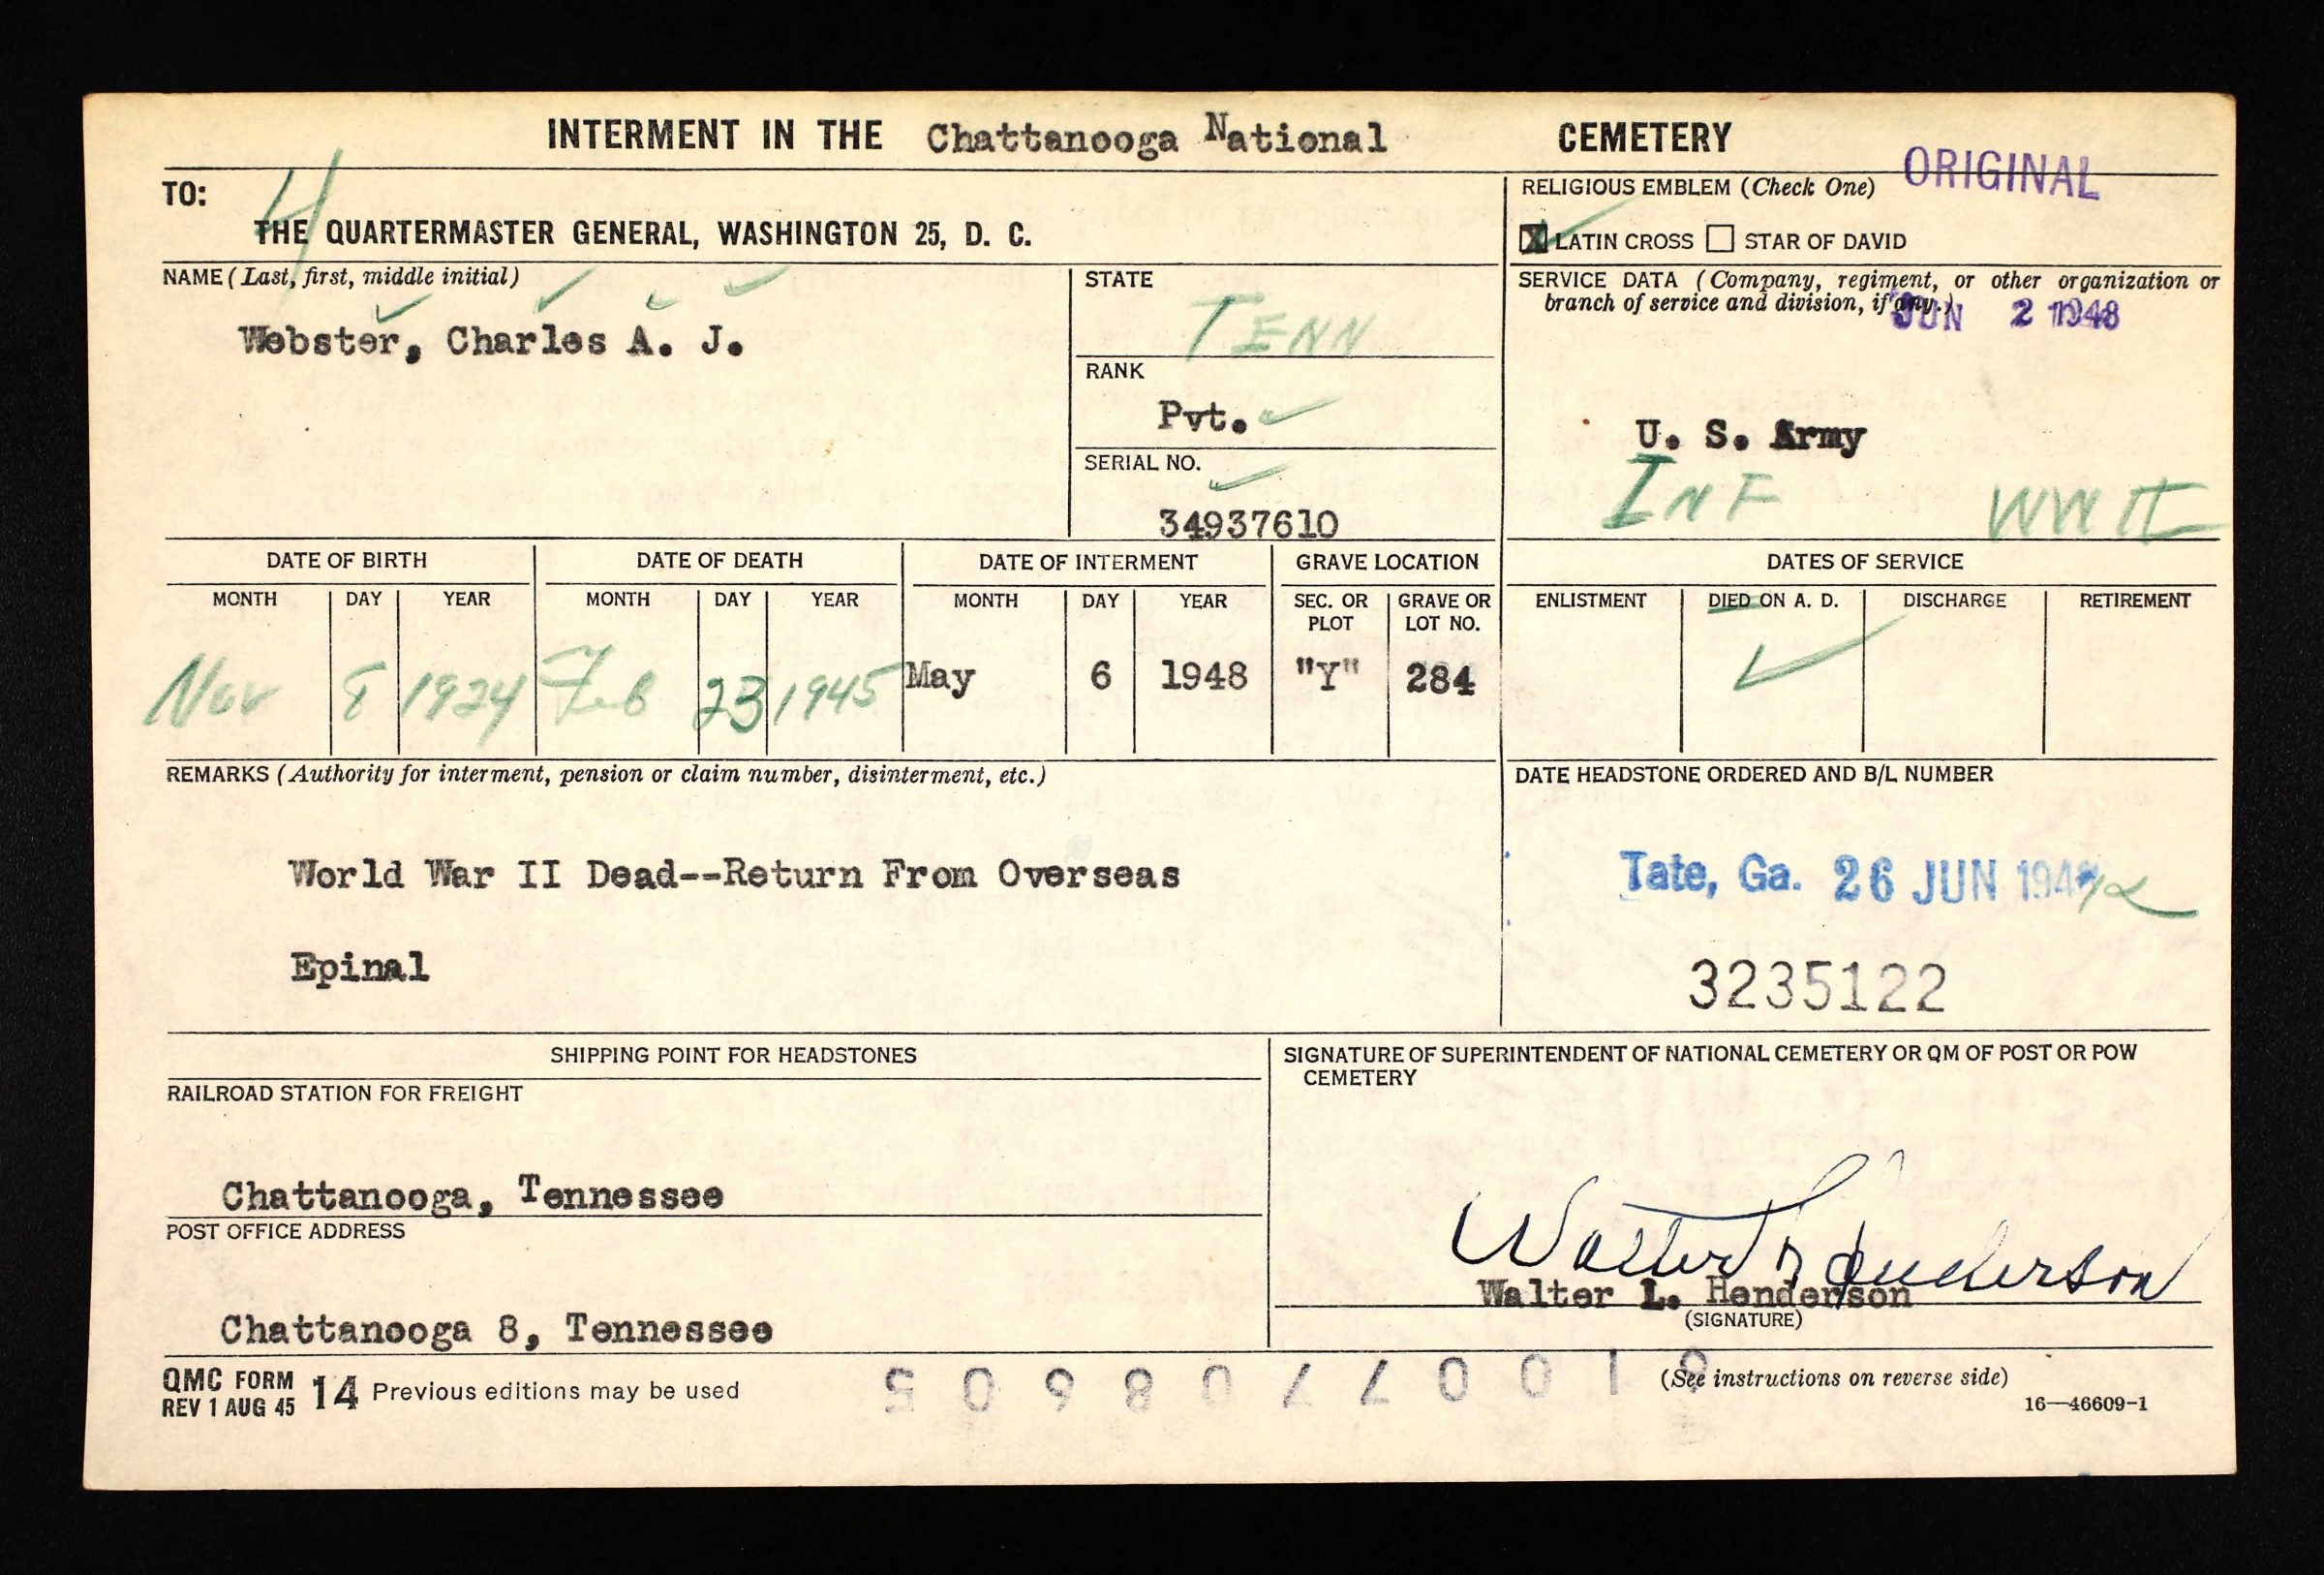 INTERMENT IN THE Chattanooga National CEMETERY
ORIGINAL
TO:
THE QUARTERMASTER GENERAL, WASHINGTON 25, D. C.
H
RELIGIOUS EMBLEM (Check One)
X LATIN CROSS STAR OF DAVID
NAME (Last, first, middle initial)
Webster, Charles A. J.
STATE
TENN
RANK
Pvt.
SERIAL NO.
34937610
SERVICE DATA (Company, regiment, or other organization or
branch of service and division, if any.)
JUN 2 1948
U. S. Army
INF WW II
DATE OF BIRTH
MONTH DAY YEAR
Nov 8 1924
DATE OF DEATH
MONTH DAY YEAR
Feb 23 1945
DATE OF INTERMENT
MONTH DAY YEAR
May 6 1948
GRAVE LOCATION
SEC. OR PLOT
GRAVE OR LOT NO.
"Y" 284
DATES OF SERVICE
ENLISTMENT DIED ON A. D. DISCHARGE RETIREMENT
REMARKS (Authority for interment, pension or claim number, disinterment, etc.)
World War II Dead--Return From Overseas
Epinal
DATE HEADSTONE ORDERED AND B/L NUMBER
Tate, Ga. 26 JUN 194
3235122
SHIPPING POINT FOR HEADSTONES
RAILROAD STATION FOR FREIGHT
Chattanooga, Tennessee
POST OFFICE ADDRESS
Chattanooga 8, Tennessee
SIGNATURE OF SUPERINTENDENT OF NATIONAL CEMETERY OR QM OF POST OR POW
CEMETERY
Walter L Henderson
Walter L. Henderson
(SIGNATURE)
QMC FORM 14 Previous editions may be used
REV 1 AUG 45
(See instructions on reverse side)
16—46609-1